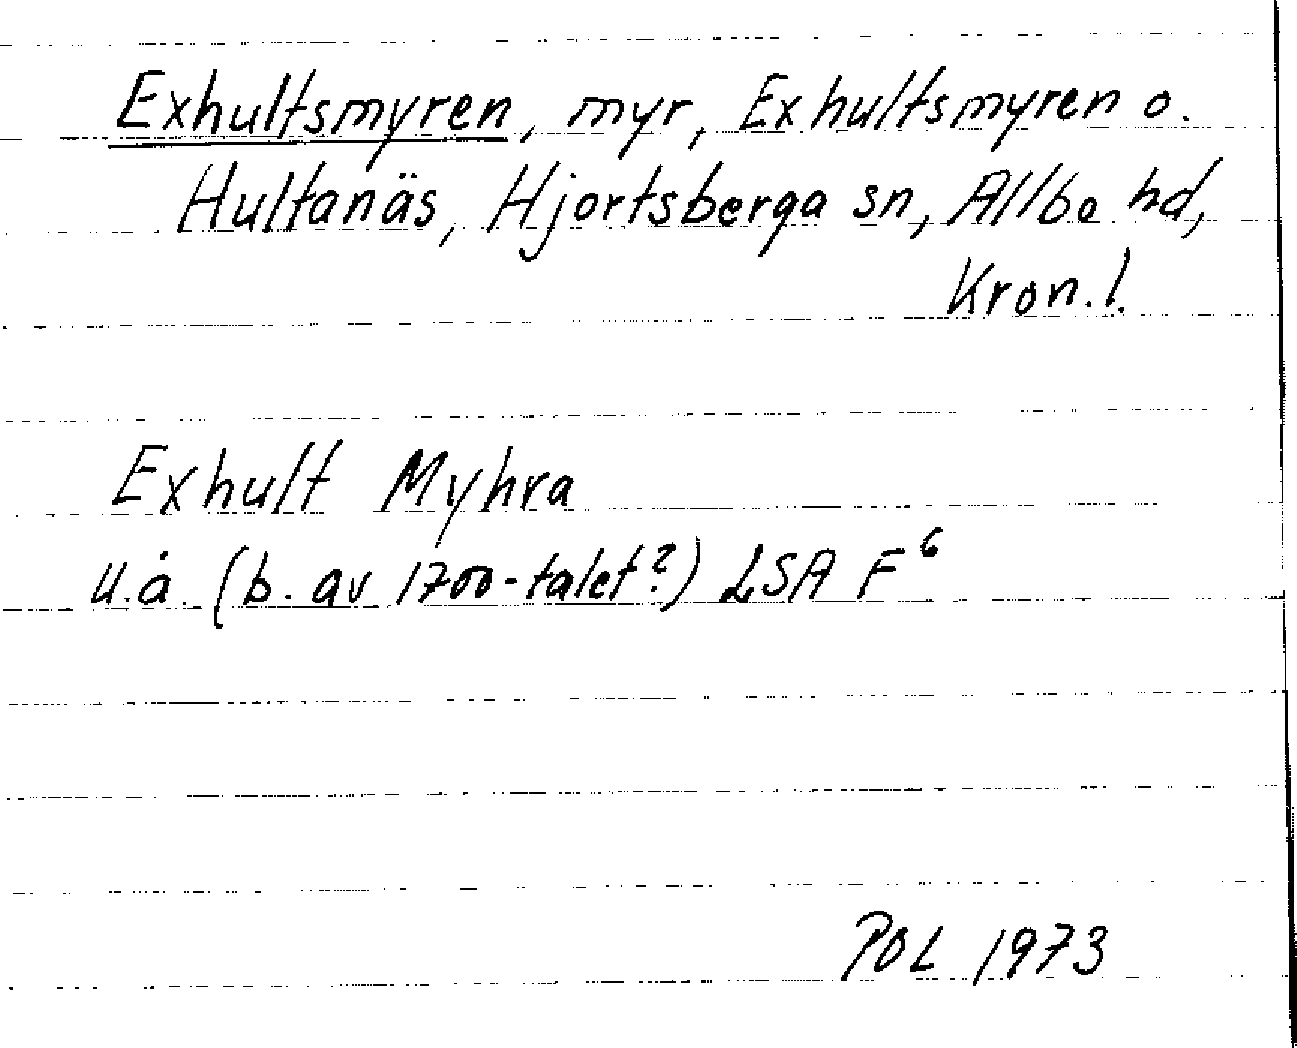 Exhultsmyren, myr, Exhultsmyren o.
Hultanäs, Hjortsberga sn, Allbo hd,
Kron. l.
Exhult Myhra
u.å. (b. av 1700-talet?) LSA F⁶
POL 1973